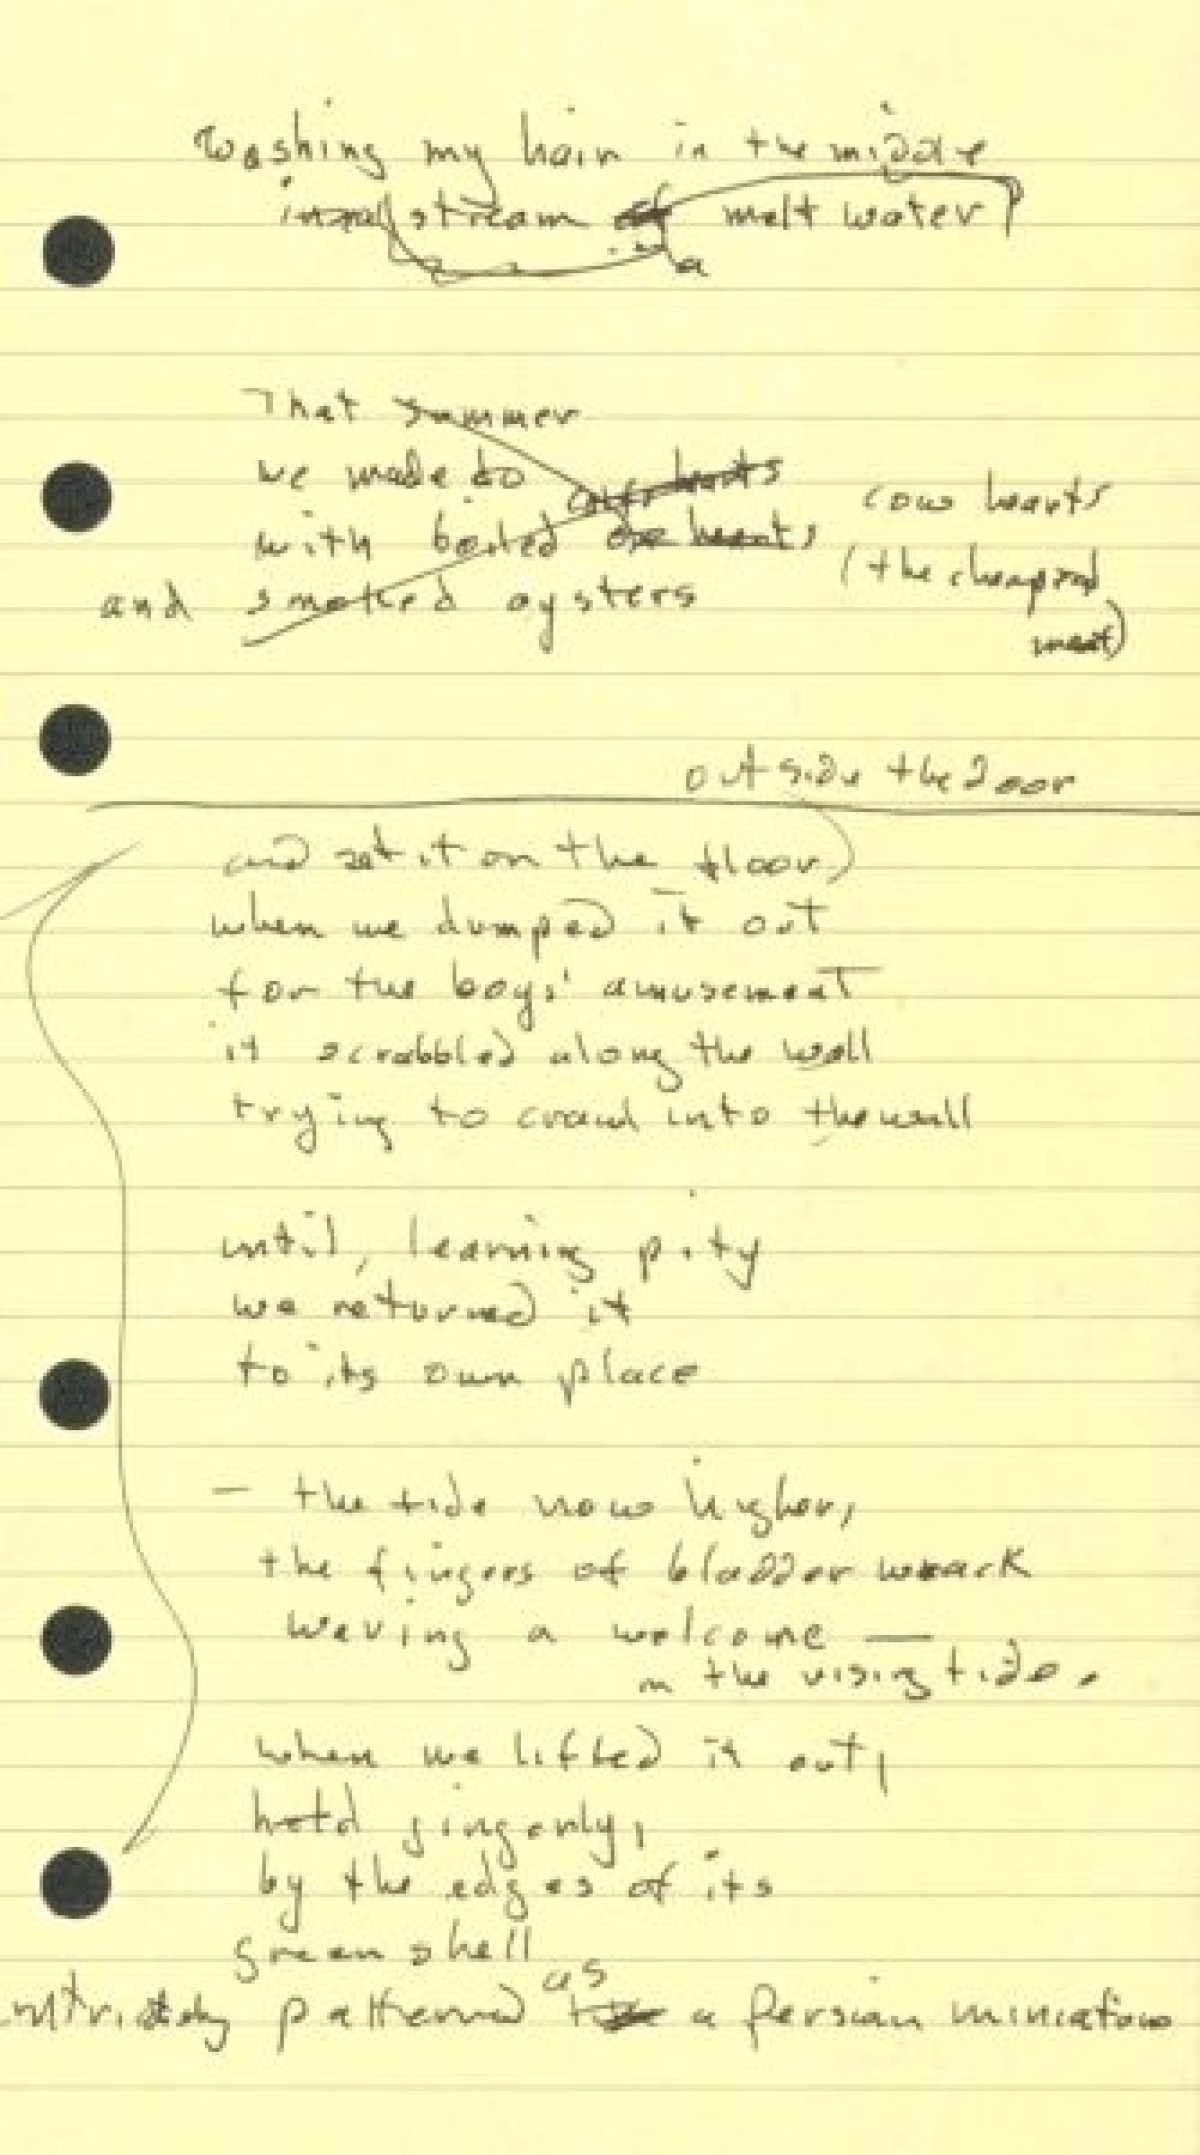 washing my hair in the middle
in a stream of melt water
a
That summer
we made do
cow hearts
with boiled hearts
cow hearts
(the cheapest
meat)
and smoked oysters
outside the door
and set it on the floor)
when we dumped it out
for the boys' amusement
it scrabbled along the wall
trying to crawl into the wall
until, learning pity
we returned it
to its own place
– the tide now higher,
the fingers of bladder wrack
waving a welcome —
in the rising tide.
when we lifted it out,
held gingerly,
by the edges of its
green shell
as
intricately patterned a Persian miniature